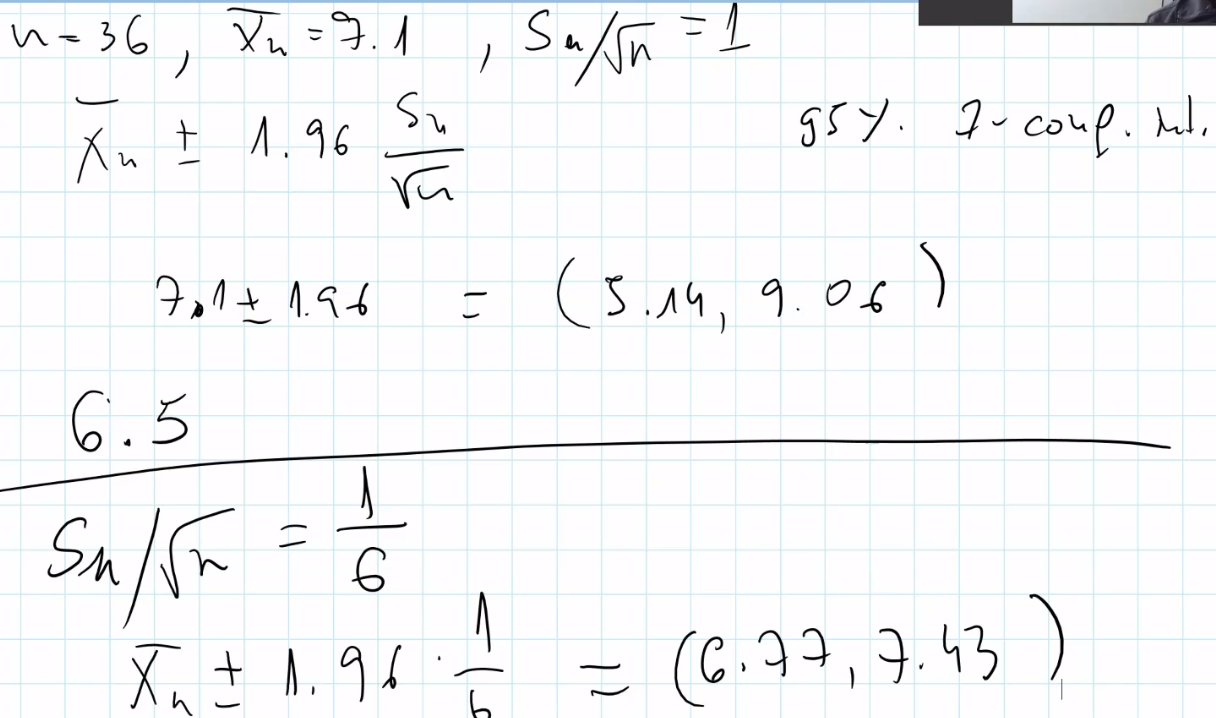 n = 36 , X̄n = 7.1 , Sn/√n = 1
X̄n ± 1.96 Sn/√n 95%. z - conf. int.
7.1 ± 1.96 = (5.14, 9.06)
6.5
Sn/√n = 1/6
X̄n ± 1.96 · 1/6 = (6.77, 7.43)